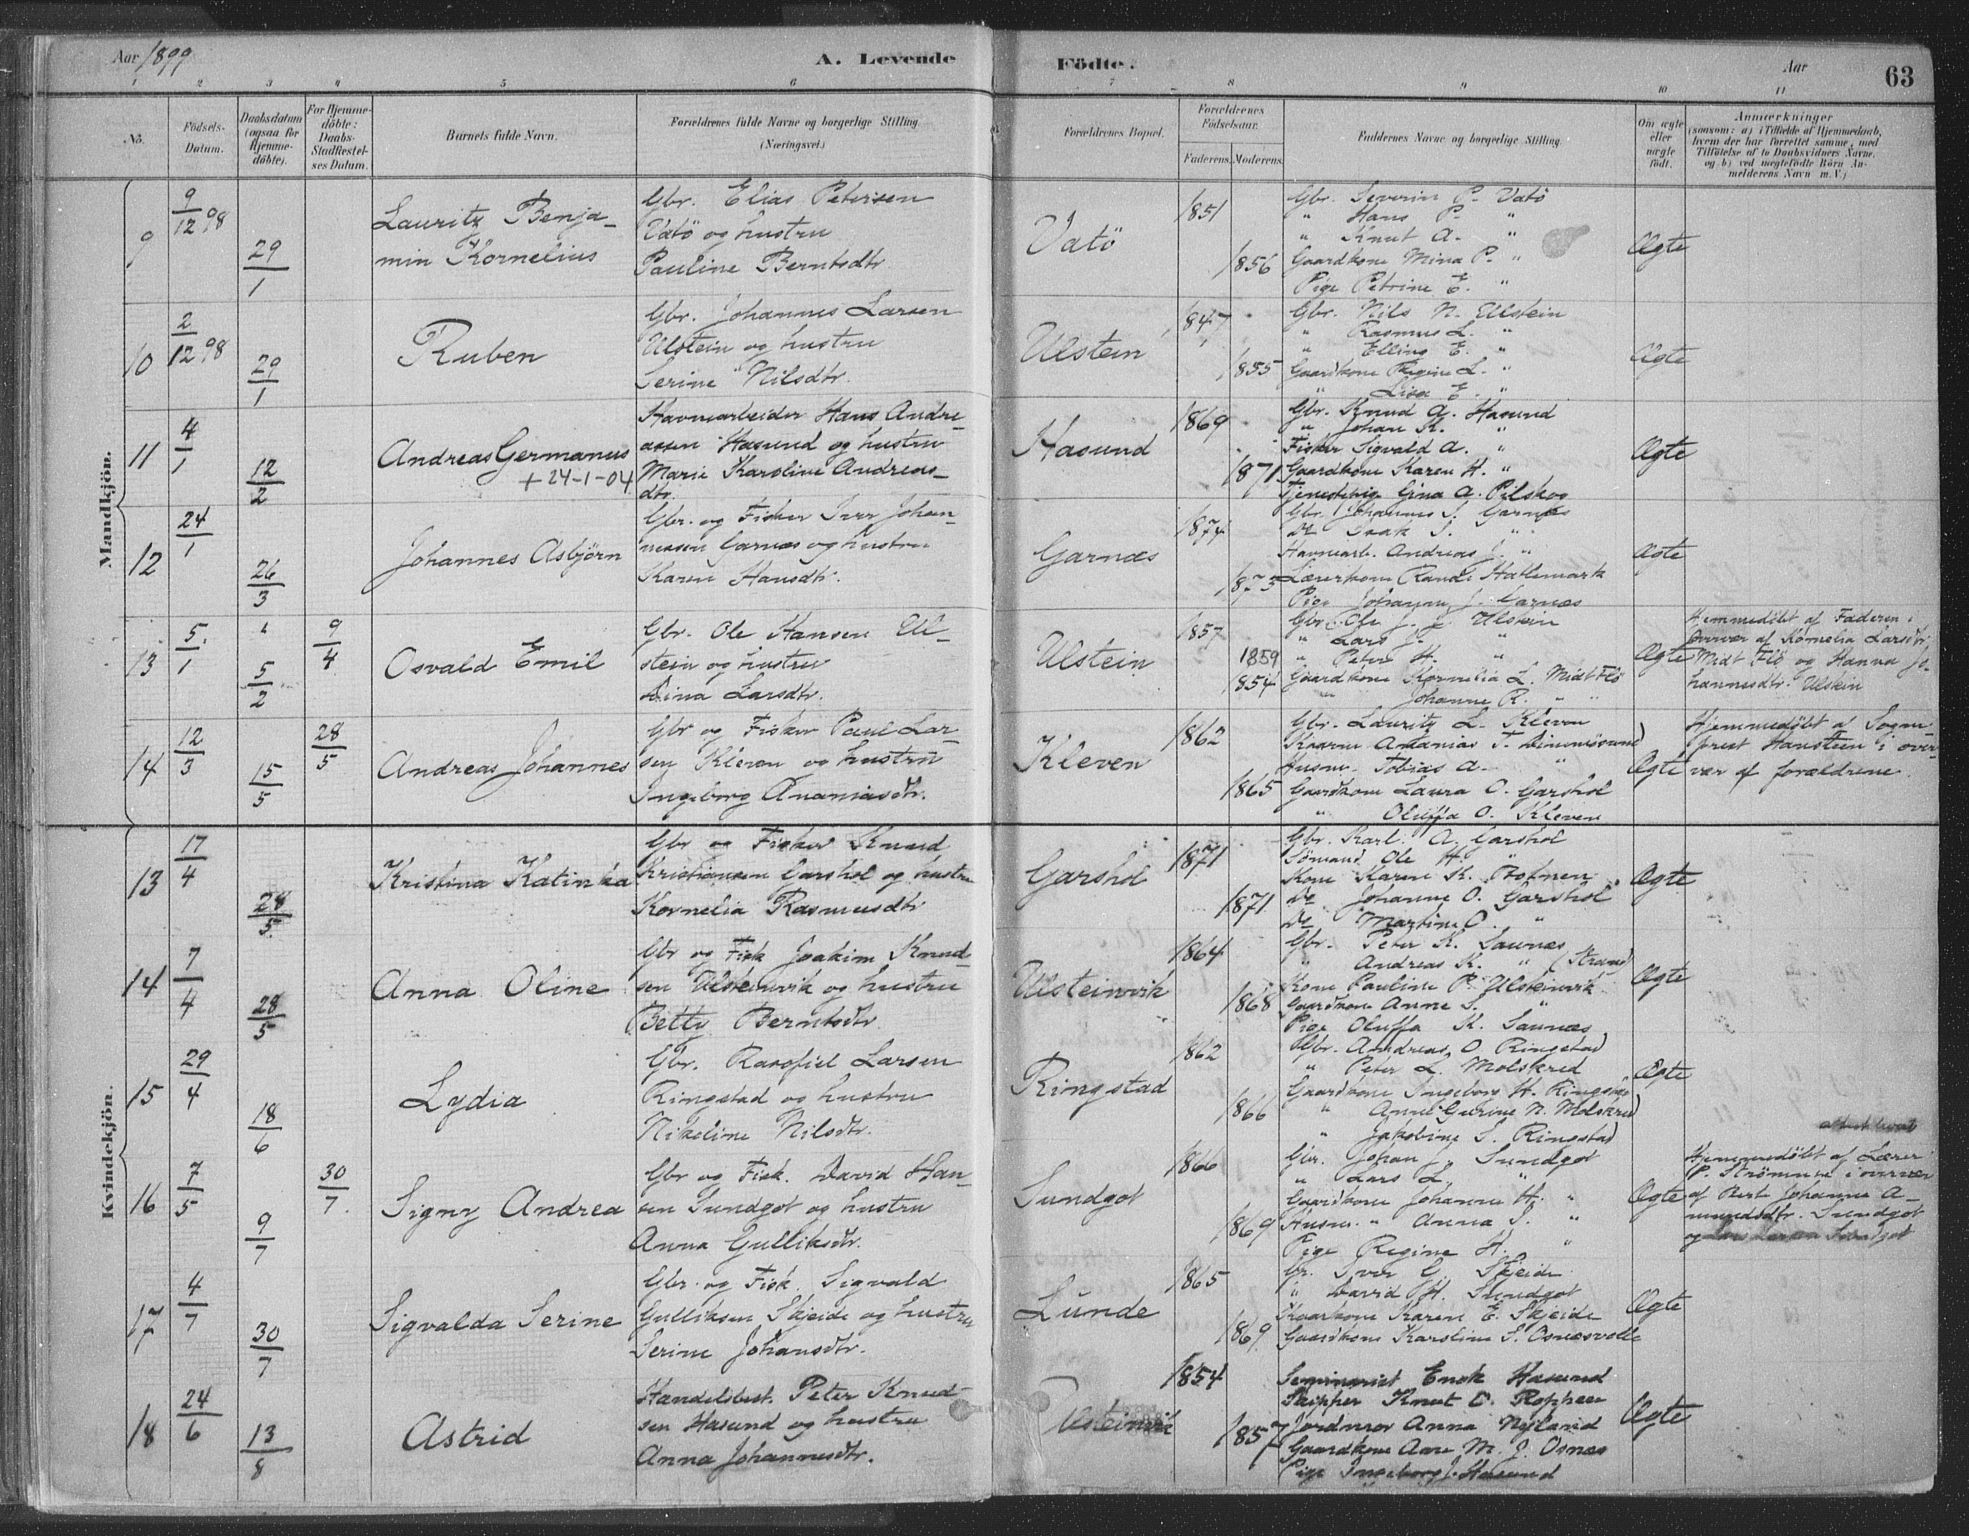 Aar 1899
A. Levende
Födte.
Aar
63
1 2 3 4 5 6 7 8 9 10 11
No.
Födsels-
Datum.
Daabsdatum
(ogsaa for
Hjemme-
döbte).
For Hjemme-
döbte:
Daabs-
Stadfæstel-
ses Datum.
Barnets fulde Navn.
Forældrenes fulde Navne og borgerlige Stilling.
(Næringsvei.)
Forældrenes Bopæl.
Forældrenes
Födselsaar.
Faderens. Moderens.
Faddernes Navne og borgerlige Stilling.
Om ægte
eller
uægte
født.
Anmærkninger
(saasom: a) i Tilfælde af Hjemmedaab,
hvem der har forrettet samme, med
Tilföielse af to Daabsvidners Navne,
og b) ved uægtefödte Börn An-
melderens Navn m. V.)
Mandkjön.
9
9/12 98
29/1
Lauritz Benja-
min Kornelius
Gbr. Elias Petersen
Vatö og hustru
Pauline Berntsdtr.
Vatö
1851
1856
Gbr. Severin P. Vatö
" Hans P. "
" Knut A. "
Gaardkone Mina P. "
Pige Petrine E. "
Ægte
10
2/12 98
29/1
Ruben
Gbr. Johannes Larsen
Ulstein og hustru
Serine Nilsdtr.
Ulstein
1847
1855
Gbr. Nils N. Ulstein
" Rasmus L. "
" Elling E. "
Gaardkone Regine L. "
" Lisa E. "
Ægte
11
4/1
12/2
Andreas Germanus
+ 24-1-04
Havnearbeider Hans Andre-
assen Hasund og hustru
Marie Karoline Andreas-
dtr.
Hasund
1869
1871
Gbr. Knud A. Hasund
" Johan K. "
Fisker Sigvald A. "
Gaardkone Karen H. "
Tjenestepige Gina A. Pilskog
Ægte
12
24/1
26/3
Johannes Asbjörn
Gbr. og Fisker Iver Johan-
nessen Garnæs og hustru
Karen Hansdtr.
Garnæs
1874
1873
Gbr. Johannes I. Garnæs
Do Isak J. "
Havnearb. Andreas J. "
Lærerkone Randi Hatlemark
Pige Johanne J. Garnæs
Ægte
13
5/1
5/2
9/4
Osvald Emil
Gbr. Ole Hansen Ul-
stein og hustru
Lina Larsdtr.
Ulstein
1857
1859
1854
Gbr. Ole J. J. Ulstein
" Lars J. "
" Peter H. "
Gaardkone Kornelia L. Midt Flö
" Johanne R. "
Ægte
Hjemmedöbt af Faderen i
overvær af Kornelia Larsdtr.
Midt Flö og Hanna Jo-
hannesdtr. Ulstein
14
12/3
15/5
28/5
Andreas Johannes
Gbr og Fisker Paul Lar-
sen Kleven og hustru
Ingeborg Ananiasdtr.
Kleven
1862
1865
Gbr. Lauritz L. Kleven
Ananias T. Dimmösund
Husm. Tobias A. "
Gaardkone Laura O. Garshol
" Oluffa O. Kleven
Ægte
Hjemmedöbt af Sogne-
prest Hansteen i over-
vær af forældrene.
Kvindekjön.
13
17/4
28/5
Kristina Katinka
Gbr og Fisker Knud
Kristiansen Garshol og hustru
Kornelia Rasmusdtr
Garshol
1871
1871
Gbr. Karl A. Garshol
Sömand Ole H. "
Kone Karen K. Botnen
Do Johanne O. Garshol
Do Martine O. "
Ægte
14
7/4
28/5
Anna Oline
Gbr og Fisk Joakim Knud-
sen Ulsteinvik og hustru
Betty Berntsdtr.
Ulsteinvik
1864
1868
Gbr. Peter K. Saunæs
" Andreas K. " (Strand)
Kone Pauline P. Ulsteinvik
Gaardkone Anne S. "
Pige Oluffa K. Saunæs
Ægte
15
29/4
18/6
Lydia
Gbr. Rasofiel Larsen
Ringstad og hustru
Nikoline Nilsdtr.
Ringstad
1862
1866
Gbr. Andreas O. Ringstad
" Peter L. Molskred
Gaardkone Ingeborg H. Ringstad
" Anne Gurine N. Molskred
" Jakobine S. Ringstad
Ægte
16
7/5
9/7
30/7
Signy Andrea
Gbr og Fisk. David Han-
sen Sundgot og hustru
Anna Gulliksdtr.
Sundgot
1866
1869
Gbr. Johan J. Sundgot
" Lars L. "
Gaardkone Johanne H. "
Husm. " Anna I. "
Pige Regine H. "
Ægte
Hjemmedöbt af Lærer
P. Strömmen i overvær
af Bert Johanne A-
mundsdtr. Sundgot
og Lars Larsen Sundgot
17
4/7
30/7
Sigvalda Serine
Gbr. og Fisk. Sigvald
Gulliksen Skjeide og hustru
Serine Johansdtr.
Lunde
1865
1869
Gbr. Iver G. Skjeide
" David H. Sundgot
Gaardkone Karen E. Skjeide
Gaardkone Karoline S. Osnæsvolle
Ægte
18
24/6
13/8
Astrid
Handelsbest. Peter Knud-
sen Hasund og hustru
Anna Johannesdtr.
Ulsteinvik
1854
1857
Seminarist Enok Hasund
Skipper Knut O. Roppen
Jordmor Anna Nyland
Gaardkone Ane M. J. Osnæs
Pige Ingeborg J. Hasund
Ægte